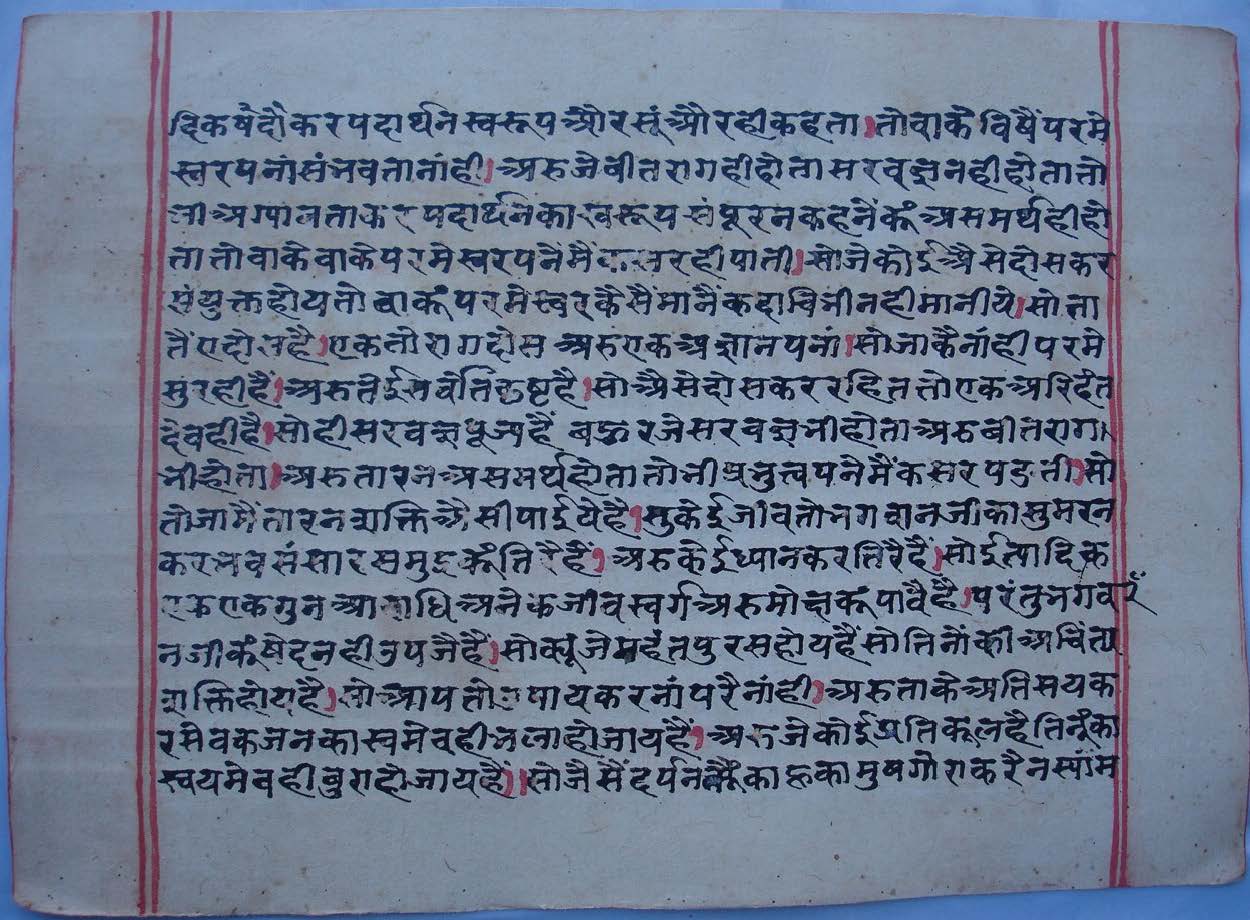 दिक षेदौं कर पदार्थन स्वरूप और सूं और ही कहता। तो वाकै विषैं परमे
स्वरपनां संभवता नांही। अरु जे वीतराग ही होता सरवज्ञ न ही होता तो
भी कर पदार्थनि का स्वरूप संपूरन कहनें कूं असमर्थ ही हो
ता तो वाके वाके परमेस्वरपनें मैं कसर ही पाती। सो जे कोई औसे दोस कर
संयुक्त होय तो वाकूं परमेस्वर कैसैं मानैं कदाचि भी नही मानीये। सो ता
तैं ए दोस है। एक तो राग दोस अरु एक अज्ञानपनां। सो जाकै नांही परमे
सुर ही हैं। अरु तेई सर्व है। सो औसे दोस कर रहित तो एक अरिहंत
देव ही है। सो ही सरवज्ञ पूज्य हैं बहुरि जे सरवज्ञ भी होता अरु बीतराग।
भी होता। अरु तारन असमर्थ होता तो भी प्रभुत्वपने मैं कसर पडती। सो
तो जामैं तारन शक्ति औसी पाईयै है। सु केई जीव तो भगवान जी का सुमरन
कर भव संसार समुद्र कूं तिरै हैं। अरु केई ध्यान कर तिरै हैं। सो ईत्यादि के
एक एक गुन आराधि अनेक जीव स्वर्ग अरु मोक्ष कूं पावै है। परंतु भगवां
न जी कूं षेद नही उपजै हैं। सो क्यूं जे महंत पुरस होय हैं सो तिनों की अचिंत्य
शक्ति होय है। सो आप तो उपाय करनां परै नांही। अरु ताके अतिसय क
र सेवक जन का स्वमेव ही भला हो जाय हैं। अरु जे कोई प्रतिकूल है तिनूं का
स्वयमेव ही बुरा हो जाय हैं। सो जैसैं दर्पन काहू का मुष गौरा करै न स्यांम